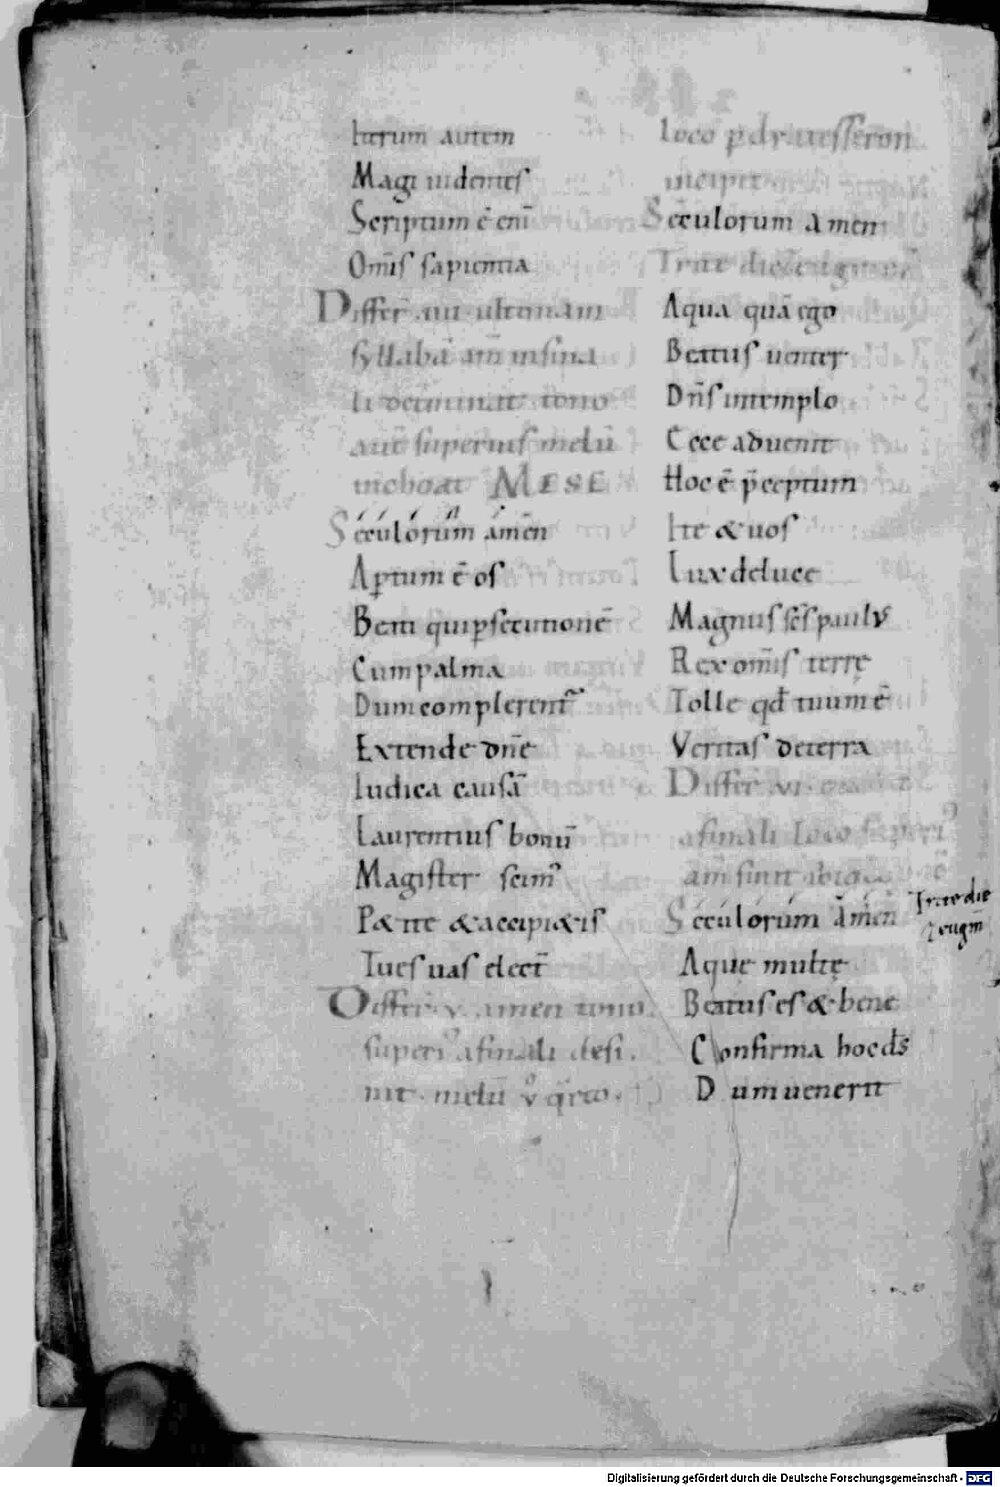 Iterum autem
Magi uidentes
Scriptum ē eni̅
Om̅is sapientia
Differ̅ ultimam
syllabā am̅ in fina
li detinunt tono
aut̅ superius melū
inchoat MESE
Seculorum am̅en
Aptum ē os
Beati qui psecutionē
Cum palma
Dum complerent
Extende dn̅e
Iudica causā
Laurentius bonū
Magister scim᾽
P&ite & accipi&is
Tu es uas elect̅
Differ̅ v amen tono
superi᾽ a finali desi
nit melū v̊
loco
incipit
Seculorum amen
Aqua quā ego
Beatus uenter
Dn̅s in templo
Ecce aduenit
Hoc ē p̅ceptum
Ite & uos
Lux de luce
Magnus sc̅s paulus
Rex om̅is terrę
Tolle qd̅ tuum ē
Veritas de terra
Differ̅ vi
a finali loco superi᾽
am̅ sunt
Seculorum Am̅en
Aquę multę
Beatus es & bene
Confirma hoc ds̅
Dum uenerit
Digitalisierung gefördert durch die Deutsche Forschungsgemeinschaft - DFG